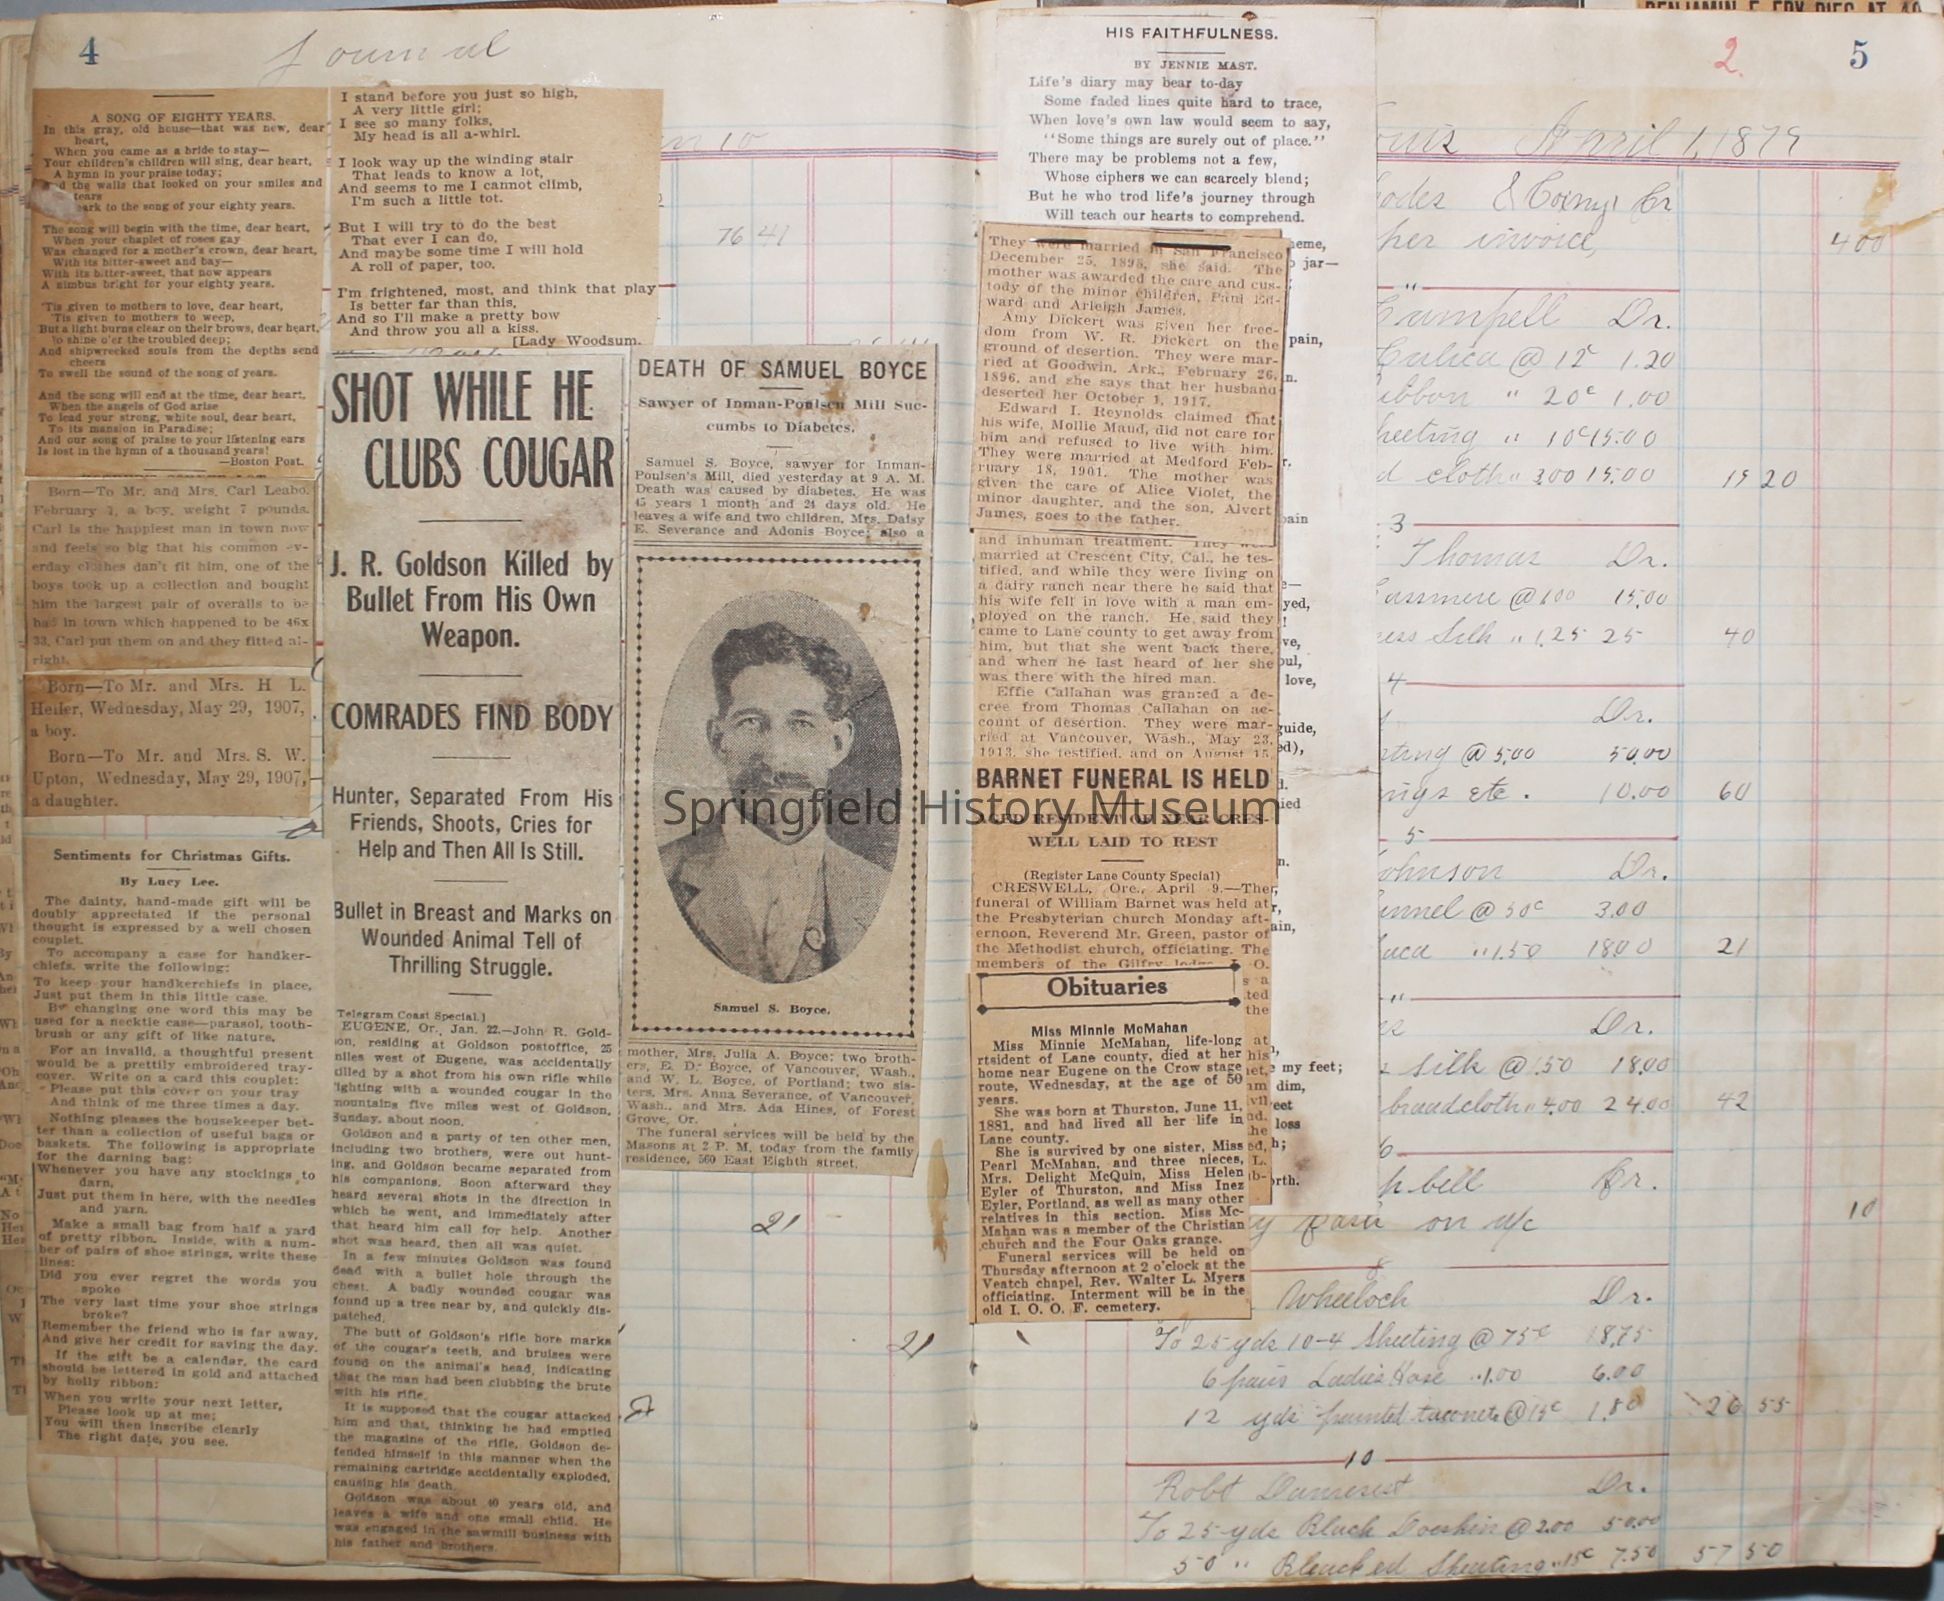 4
Journal
A SONG OF EIGHTY YEARS.
In this gray, old house—that was new, dear
heart,
When you came as a bride to stay—
Your children's children will sing, dear heart,
A hymn in your praise today;
the walls that looked on your smiles and
tears
to the song of your eighty years.
The song will begin with the time, dear heart,
When your chaplet of roses gay
Was changed for a mother's crown, dear heart,
With its bitter-sweet and bay—
With its bitter-sweet, that now appears
A nimbus bright for your eighty years.
'Tis given to mothers to love, dear heart,
'Tis given to mothers to weep,
But a light burns clear on their brows, dear heart,
To shine o'er the troubled deep;
And shipwrecked souls from the depths send
cheers
To swell the sound of the song of years.
And the song will end at the time, dear heart,
When the angels of God arise
To lead your strong, white soul, dear heart,
To its mansion in Paradise;
And our song of praise to your listening ears
Is lost in the hymn of a thousand years!
—Boston Post.
Born—To Mr. and Mrs. Carl Leabo,
February 1, a boy, weight 7 pounds.
Carl is the happiest man in town now
and feels so big that his common ev-
erday clothes dan't fit him, one of the
boys took up a collection and bought
him the largest pair of overalls to be
had in town which happened to be 46x
33. Carl put them on and they fitted al-
right.
Born—To Mr. and Mrs. H L.
Heiler, Wednesday, May 29, 1907,
a boy.
Born—To Mr. and Mrs. S. W.
Upton, Wednesday, May 29, 1907,
a daughter.
Sentiments for Christmas Gifts.
By Lucy Lee.
The dainty, hand-made gift will be
doubly appreciated if the personal
thought is expressed by a well chosen
couplet.
To accompany a case for handker-
chiefs, write the following:
To keep your handkerchiefs in place,
Just put them in this little case.
By changing one word this may be
used for a necktie case—parasol, tooth-
brush or any gift of like nature.
For an invalid, a thoughtful present
would be a prettily embroidered tray-
cover. Write on a card this couplet:
Please put this cover on your tray
And think of me three times a day.
Nothing pleases the housekeeper bet-
ter than a collection of useful bags or
baskets. The following is appropriate
for the darning bag:
Whenever you have any stockings to
darn,
Just put them in here, with the needles
and yarn.
Make a small bag from half a yard
of pretty ribbon. Inside, with a num-
ber of pairs of shoe strings, write these
lines:
Did you ever regret the words you
spoke
The very last time your shoe strings
broke?
Remember the friend who is far away,
And give her credit for saving the day.
If the gift be a calendar, the card
should be lettered in gold and attached
by holly ribbon:
When you write your next letter,
Please look up at me;
You will then inscribe clearly
The right date, you see.
I stand before you just so high,
A very little girl;
I see so many folks,
My head is all a-whirl.
I look way up the winding stair
That leads to know a lot,
And seems to me I cannot climb,
I'm such a little tot.
But I will try to do the best
That ever I can do,
And maybe some time I will hold
A roll of paper, too.
I'm frightened, most, and think that play
Is better far than this,
And so I'll make a pretty bow
And throw you all a kiss.
[Lady Woodsum.
76 41
SHOT WHILE HE
CLUBS COUGAR
J. R. Goldson Killed by
Bullet From His Own
Weapon.
COMRADES FIND BODY
Hunter, Separated From His
Friends, Shoots, Cries for
Help and Then All Is Still.
Bullet in Breast and Marks on
Wounded Animal Tell of
Thrilling Struggle.
Telegram Coast Special.)
EUGENE, Or., Jan. 22.—John R. Gold-
son, residing at Goldson postoffice, 25
miles west of Eugene, was accidentally
killed by a shot from his own rifle while
fighting with a wounded cougar in the
mountains five miles west of Goldson,
Sunday, about noon.
Goldson and a party of ten other men,
including two brothers, were out hunt-
ing, and Goldson became separated from
his companions. Soon afterward they
heard several shots in the direction in
which he went, and immediately after
that heard him call for help. Another
shot was heard, then all was quiet.
In a few minutes Goldson was found
dead with a bullet hole through the
chest. A badly wounded cougar was
found up a tree near by, and quickly dis-
patched.
The butt of Goldson's rifle bore marks
of the cougar's teeth, and bruises were
found on the animal's head, indicating
that the man had been clubbing the brute
with his rifle.
It is supposed that the cougar attacked
him and that, thinking he had emptied
the magazine of the rifle, Goldson de-
fended himself in this manner when the
remaining cartridge accidentally exploded,
causing his death.
Goldson was about 40 years old, and
leaves a wife and one small child. He
was engaged in the sawmill business with
his father and brothers.
DEATH OF SAMUEL BOYCE
Sawyer of Inman-Poulsen Mill Suc-
cumbs to Diabetes.
Samuel S. Boyce, sawyer for Inman-
Poulsen's Mill, died yesterday at 9 A. M.
Death was caused by diabetes. He was
45 years 1 month and 24 days old. He
leaves a wife and two children, Mrs. Daisy
E. Severance and Adonis Boyce; also a
Samuel S. Boyce.
mother, Mrs. Julia A. Boyce; two broth-
ers, E. D. Boyce, of Vancouver, Wash.,
and W. L. Boyce, of Portland; two sis-
ters, Mrs. Anna Severance, of Vancouver,
Wash., and Mrs. Ada Hines, of Forest
Grove, Or.
The funeral services will be held by the
Masons at 2 P. M. today from the family
residence, 560 East Eighth street.
21
21
Springfield History Museum
HIS FAITHFULNESS.
BY JENNIE MAST.
Life's diary may bear to-day
Some faded lines quite hard to trace,
When love's own law would seem to say,
"Some things are surely out of place."
There may be problems not a few,
Whose ciphers we can scarcely blend;
But he who trod life's journey through
Will teach our hearts to comprehend.
They were married in San Francisco
December 25, 1898, she said. The
mother was awarded the care and cus-
tody of the minor children, Paul Ed-
ward and Arleigh James.
Amy Dickert was given her free-
dom from W. R. Dickert on the
ground of desertion. They were mar-
ried at Goodwin, Ark., February 26,
1896, and she says that her husband
deserted her October 1, 1917.
Edward I. Reynolds claimed that
his wife, Mollie Maud, did not care for
him and refused to live with him.
They were married at Medford Feb-
ruary 18, 1901. The mother was
given the care of Alice Violet, the
minor daughter, and the son, Alvert
James, goes to the father.
and inhuman treatment. They were
married at Crescent City, Cal., he tes-
tified, and while they were living on
a dairy ranch near there he said that
his wife fell in love with a man em-
ployed on the ranch. He said they
came to Lane county to get away from
him, but that she went back there,
and when he last heard of her she
was there with the hired man.
Effie Callahan was granted a de-
cree from Thomas Callahan on ac-
count of desertion. They were mar-
ried at Vancouver, Wash., May 23,
1913, she testified, and on August 15,
BARNET FUNERAL IS HELD
AGED RESIDENT OF NEAR CRES-
WELL LAID TO REST
(Register Lane County Special)
CRESWELL, Ore., April 9.—The
funeral of William Barnet was held at
the Presbyterian church Monday aft-
ernoon, Reverend Mr. Green, pastor of
the Methodist church, officiating. The
members of the Gilfry lodge I. O.
Obituaries
Miss Minnie McMahan
Miss Minnie McMahan, life-long
rtsident of Lane county, died at her
home near Eugene on the Crow stage
route, Wednesday, at the age of 50
years.
She was born at Thurston, June 11,
1881, and had lived all her life in
Lane county.
She is survived by one sister, Miss
Pearl McMahan, and three nieces,
Mrs. Delight McQuin, Miss Helen
Eyler of Thurston, and Miss Inez
Eyler, Portland, as well as many other
relatives in this section. Miss Mc-
Mahan was a member of the Christian
church and the Four Oaks grange.
Funeral services will be held on
Thursday afternoon at 2 o'clock at the
Veatch chapel, Rev. Walter L. Myers
officiating. Interment will be in the
old I. O. O. F. cemetery.
heme,
jar—
pain,
yed,
love,
guide,
my feet;
dim,
loss
BENJAMIN F. FRY DIES AT 40
2. 5
April 1, 1879
& Compy Cr
her invoice, 400
"
Dr.
@ 12c 1.20
" 20c 1.00
" 10c 15.00
cloth " 3.00 15.00 15 20
3
Thomas Dr.
@ 1.00 15.00
Silk " 1.25 25 40
4
Dr.
@ 5.00 50.00
etc. 10.00 60
5
Johnson Dr.
@ 50c 3.00
" 1.50 18.00 21
"
Dr.
Silk @ 1.50 18.00
broadcloth " 4.00 24.00 42
6
Cr.
on a/c 10
8
Wheeloch Dr.
To 25 yds 10-4 Sheeting @ 75c 18.75
6 pairs Ladies Hose " 1.00 6.00
12 yds @ 15c 1.80 26 55
10
Robt Dr.
To 25 yds Black Doeskin @ 2.00 50.00
50 " Bleached Sheeting " 15c 7.50 57 50